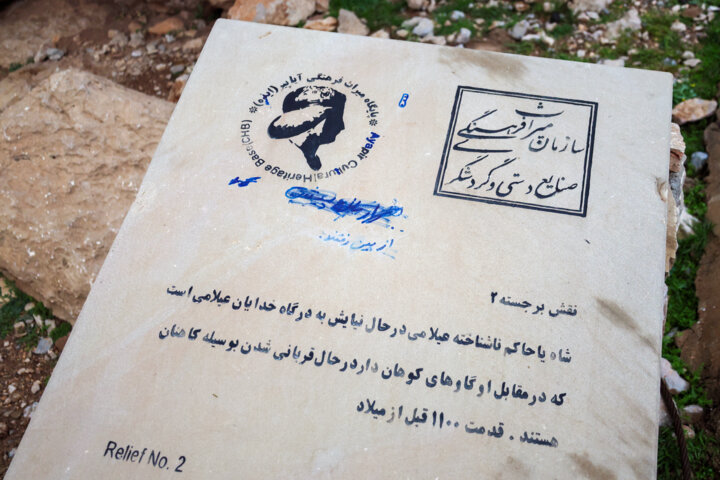 پایگاه میراث فرهنگی آیاپیر (ایذه)
Ayapir Cultural Heritage Base(CHB)
سازمان میراث فرهنگی
صنایع دستی و گردشگری
از بین رفتند.
نقش برجسته ۲
شاه یا حاکم ناشناخته عیلامی در حال نیایش به درگاه خدایان عیلامی است
که در مقابل او گاوهای کوهان دار در حال قربانی شدن بوسیله کاهنان
هستند . قدمت ۱۱۰۰ قبل از میلاد
Relief No. 2